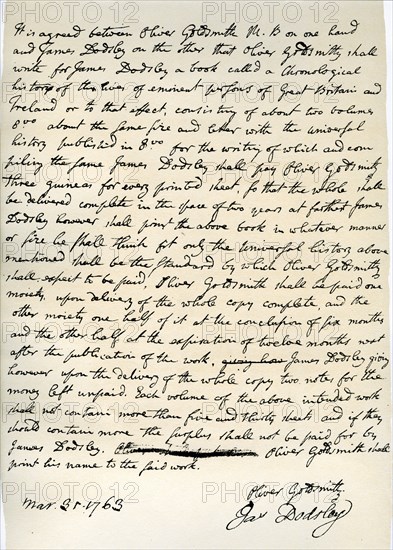 It is agreed between Oliver Goldsmith M. B on one hand
and James Dodsley on the other that Oliver Goldsmith shall
write for James Dodsley a book called a Chronological
history of the lives of eminent persons of Great Britain and
Ireland or to that effect, consisting of about two volumes
8vo about the same size and letter with the universal
history published in 8vo for the writing of which and com
piling the same James Dodsley shall pay Oliver Goldsmith
three guineas for every printed sheet, so that the whole shall
be delivered complete in the space of two years at farthest James
Dodsley however shall print the above book in whatever manner
or size he shall think fit only the Universal history above
mentioned shall be the standard by which Oliver Goldsmith
shall expect to be paid. Oliver Goldsmith shall be paid one
moiety upon delivery of the whole copy complete, and the
other moiety one half of it at the conclusion of six months
and the other half at the expiration of twelve months next
after the publication of the work, James Dodsley giving
however upon the delivery of the whole copy two notes for the
money left unpaid. Each volume of the above intended work
shall not contain more than five and thirty sheets and if they
should contain more the surplus shall not be paid for by
James Dodsley. Oliver Goldsmith shall
print his name to the said work.
Oliver Goldsmith
Mar. 31. 1763
Jas Dodsley
PHOTO12